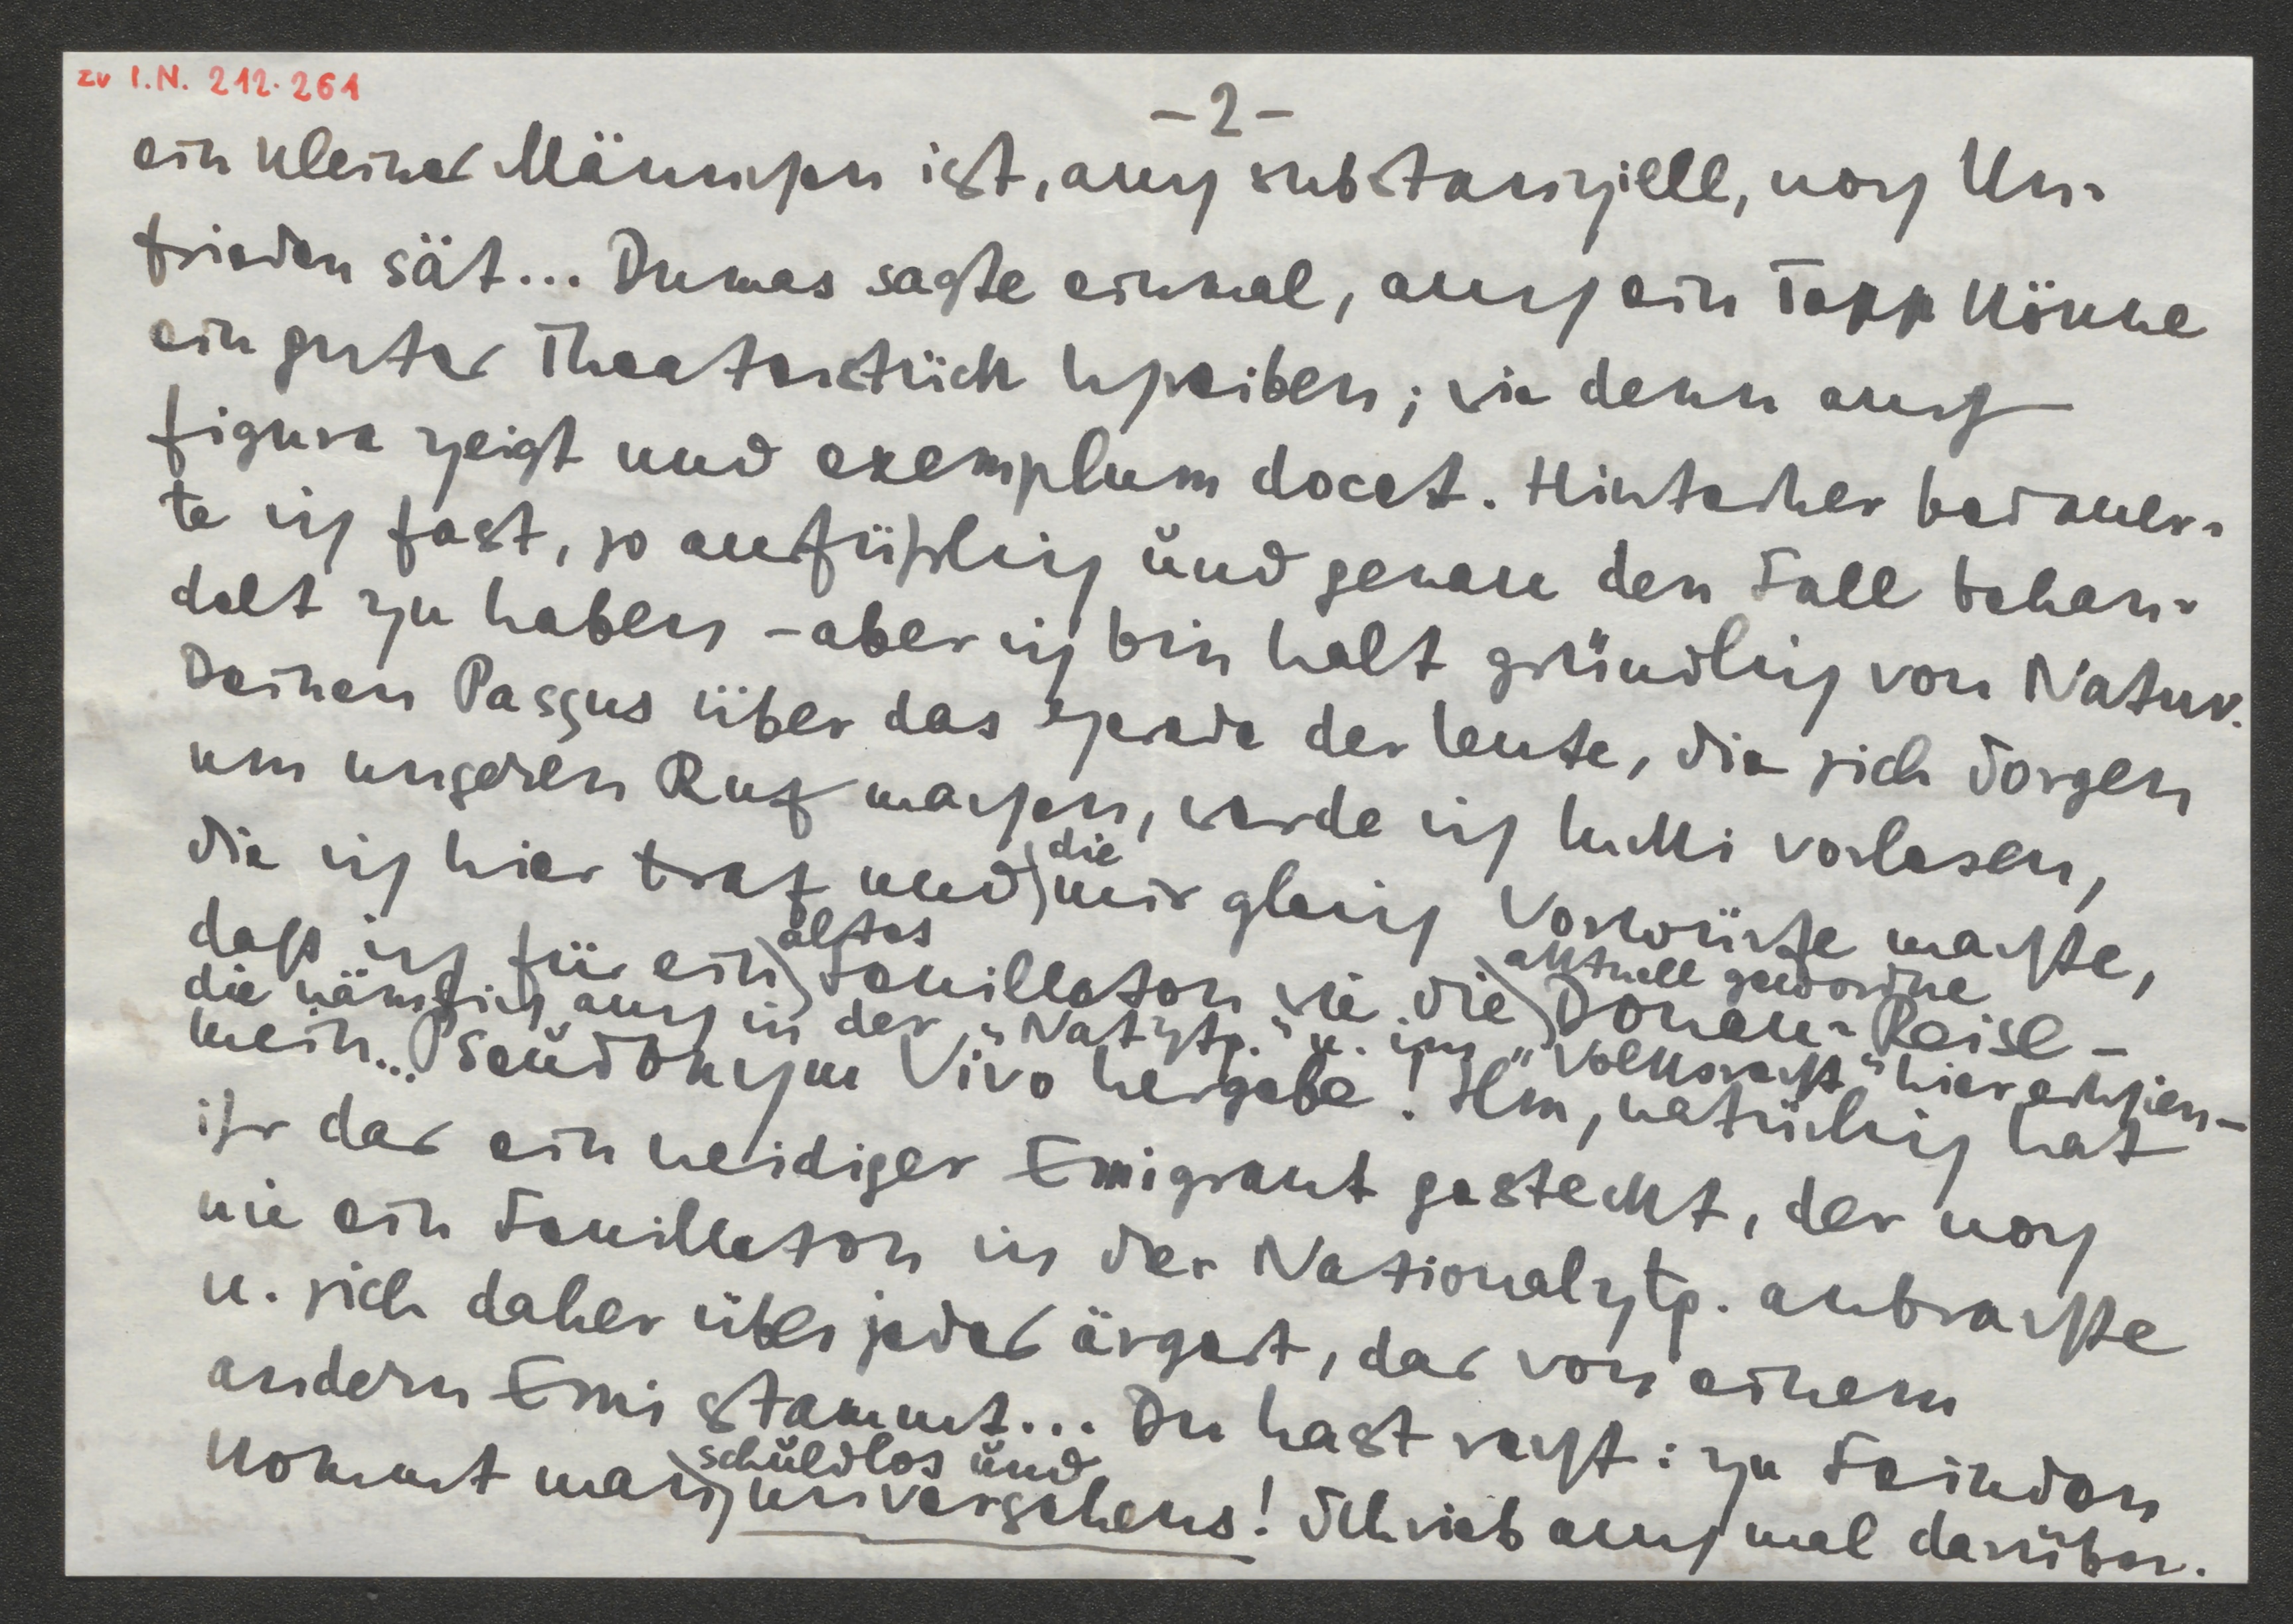 zu I.N. 212.261
- 2 -
ein kleines Männchen ist, auch substanziell, noch Un-
frieden sät... Dumas sagte einmal, auch ein Tapp könne
ein gutes Theaterstück schreiben; wie denn auch
figura zeigt und exemplum docet. Hinterher bedauer-
te ich fast, so ausführlich und genau den Fall behan-
delt zu haben - aber ich bin halt gründlich von Natur.
Deinen Passus über das Gerede der Leute, die sich Sorgen
um unseren Ruf machen, werde ich vorlesen,
die ich hier traf und die mir gleich Vorwürfe machte,
dass ich für ein altes Feuilleton wie die aktuell gewordne Donau-Reise -
die nämlich auch in der "Natztg." u. im "Volksrecht" hier erschien -
mein... Pseudonym Vivo hergebe! Hm, natürlich hat
ihr das ein neidiger Emigrant gesteckt, der noch
nie ein Feuilleton in der Nationalztg. anbrachte
u. sich daher über jedes ärgert, das von einem
andern Emi stammt... Du hast recht: zu Feinden
kommt man schuldlos und unversehens! Schrieb auch mal darüber.